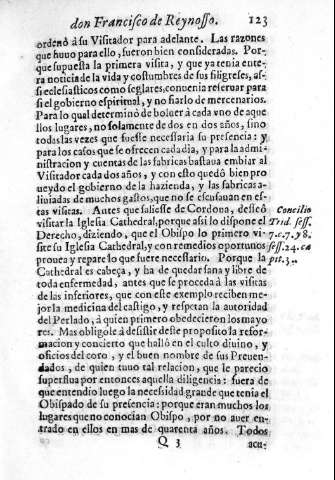 don Francisco de Reynosso. 123
ordenò à su Visitador para adelante. Las razones
que huuo para ello, fueron bien consideradas. Por-
que supuesta la primera visita, y que ya tenia ente
ra noticia de la vida y costumbres de sus filigreses, as-
si eclesiasticos como seglares, conuenia reseruar para
si el gobierno espiritual, y no fiarlo de mercenarios.
Para lo qual determinò de boluer à cada vno de aque
llos lugares, no solamente de dos en dos años, sino
todas las vezes que fuesse necessaria su presencia: y
para los casos que se ofrecen cada dia, y para la admi-
nistracion y cuentas de las fabricas bastaua embiar al
Visitador cada dos años, y con esto quedò bien pro
ueydo el gobierno de la hazienda, y las fabricas a-
liuiadas de muchos gastos, que no se escusauan en es-
tas visitas. Antes que saliesse de Cordoua, desseò
visitar la Iglesia Cathedral, porque assi lo dispone el
Derecho, diziendo, que el Obispo lo primero vi-
site su Iglesia Cathedral, y con remedios oportunos
prouea y repare lo que fuere necessario. Porque la
Cathedral es cabeça, y ha de quedar sana y libre de
toda enfermedad, antes que se proceda à las visitas
de las inferiores, que con este exemplo reciben me-
jor la medicina del castigo, y respetan la autoridad
del Perlado, à quien primero obedecieron los mayo
res. Mas obligòle à desistir deste proposito la refor-
macion y concierto que hallò en el culto diuino, y
oficios del coro, y el buen nombre de sus Preuen-
dados, de quien tuuo tal relacion, que le parecio
superflua por entonces aquella diligencia: fuera de
que entendio luego la necessidad grande que tenia el
Obispado de su presencia: porque eran muchos los
lugares que no conocian Obispo, por no auer en-
trado en ellos en mas de quarenta años. Todos
Q 3 acu-
Concilio
Trid. sess.
7. c. 7. y 8.
sess. 24. ca
pit. 3.